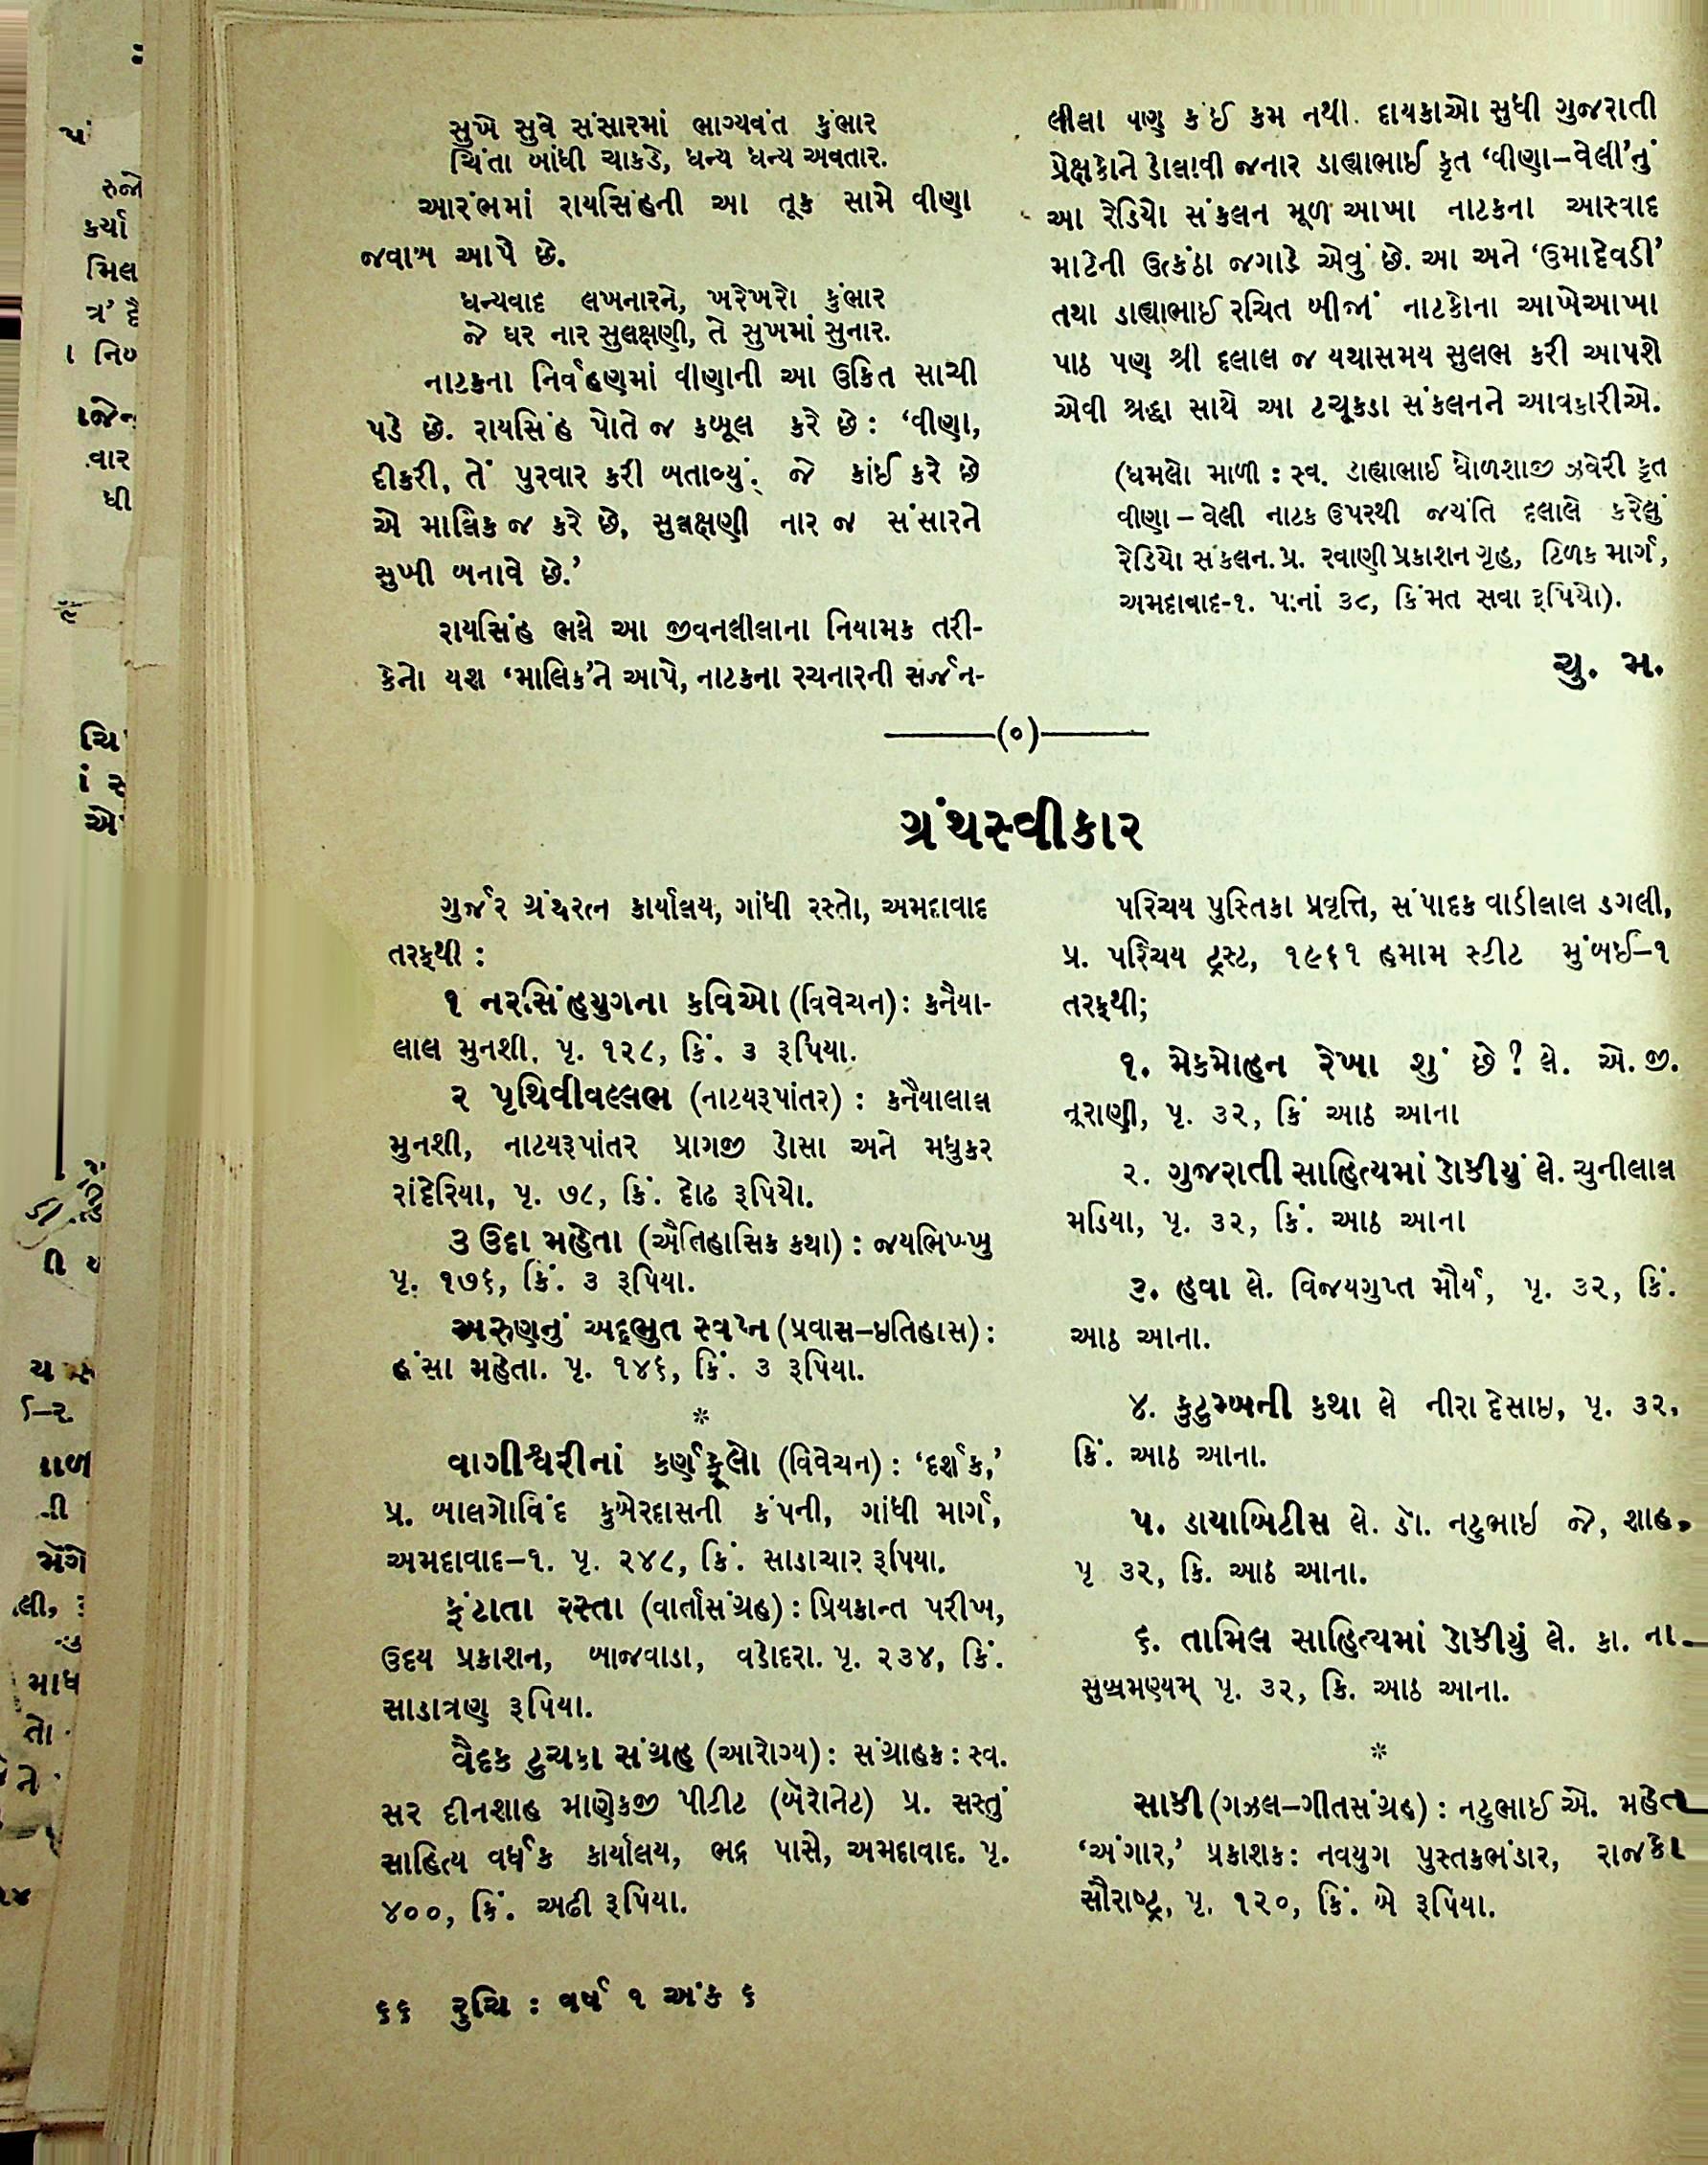 સુખે સુવે સંસારમાં ભાગ્યવંત કુંભાર
ચિંતા બાંધી ચાકડે, ધન્ય ધન્ય અવતાર.
આરંભમાં રાયસિંહની આ તૂક સામે વીણા
જવાબ આપે છે.
ધન્યવાદ લખનારને, ખરેખરો કુંભાર
જે ઘર નાર સુલક્ષણી, તે સુખમાં સુનાર.
નાટકના નિર્વહણમાં વીણાની આ ઉકિત સાચી
પડે છે. રાયસિંહ પોતે જ કબૂલ કરે છે : ‘વીણા,
દીકરી, તેં પુરવાર કરી બતાવ્યું. જે કાંઈ કરે છે
એ માલિક જ કરે છે, સુલક્ષણી નાર જ સંસારને
સુખી બનાવે છે.’
રાયસિંહ ભલે આ જીવનલીલાના નિયામક તરી-
કેનો યશ ‘માલિક’ને આપે, નાટકના રચનારની સર્જન-
લીલા પણ કંઈ કમ નથી. દાયકાઓ સુધી ગુજરાતી
પ્રેક્ષકોને ડોલાવી જનાર ડાહ્યાભાઈ કૃત ‘વીણા–વેલી’નું
આ રેડિયો સંકલન મૂળ આખા નાટકના આસ્વાદ
માટેની ઉત્કંઠા જગાડે એવું છે. આ અને ‘ઉમાદેવડી’
તથા ડાહ્યાભાઈ રચિત બીજાં નાટકોના આખેઆખા
પાઠ પણ શ્રી દલાલ જ યથાસમય સુલભ કરી આપશે
એવી શ્રદ્ધા સાથે આ ટચૂકડા સંકલનને આવકારીએ.
(ધમલો માળી : સ્વ. ડાહ્યાભાઈ ધોળશાજી ઝવેરી કૃત
વીણા – વેલી નાટક ઉપરથી જયંતિ દલાલે કરેલું
રેડિયો સંકલન. પ્ર. રવાણી પ્રકાશન ગૃહ, ટિળક માર્ગ,
અમદાવાદ-૧. પાનાં ૩૮, કિંમત સવા રૂપિયો).
ચુ. મ.
ગ્રંથસ્વીકાર
ગુર્જર ગ્રંથરત્ન કાર્યાલય, ગાંધી રસ્તો, અમદાવાદ
તરફથી :
૧ નરસિંહયુગના કવિઓ (વિવેચન) : કનૈયા-
લાલ મુનશી. પૃ. ૧૨૮, કિં. ૩ રૂપિયા.
૨ પૃથિવીવલ્લભ (નાટયરૂપાંતર) : કનૈયાલાલ
મુનશી, નાટયરૂપાંતર પ્રાગજી ડોસા અને મધુકર
રાંદેરિયા, પૃ. ૭૮, કિં. દોઢ રૂપિયો.
૩ ઉદા મહેતા (ઐતિહાસિક કથા) : જયભિખ્ખુ
પૃ. ૧૭૬, કિં. ૩ રૂપિયા.
અરુણનું અદ્ભુત સ્વપ્ન (પ્રવાસ–ઇતિહાસ) :
હંસા મહેતા. પૃ. ૧૪૬, કિં. ૩ રૂપિયા.
*
વાગીશ્વરીનાં કર્ણફૂલો (વિવેચન) : ‘દર્શક,’
પ્ર. બાલગોવિંદ કુબેરદાસની કંપની, ગાંધી માર્ગ,
અમદાવાદ–૧. પૃ. ૨૪૮, કિં. સાડાચાર રૂપિયા.
ફંટાતા રસ્તા (વાર્તાસંગ્રહ) : પ્રિયકાન્ત પરીખ,
ઉદય પ્રકાશન, બાજવાડા, વડોદરા. પૃ. ૨૩૪, કિં.
સાડાત્રણ રૂપિયા.
વૈદક ટુચકા સંગ્રહ (આરોગ્ય) : સંગ્રાહક : સ્વ.
સર દીનશાહ માણેકજી પીટીટ (બૅરોનેટ) પ્ર. સસ્તું
સાહિત્ય વર્ધક કાર્યાલય, ભદ્ર પાસે, અમદાવાદ. પૃ.
૪૦૦, કિં. અઢી રૂપિયા.
પરિચય પુસ્તિકા પ્રવૃત્તિ, સંપાદક વાડીલાલ ડગલી,
પ્ર. પરિચય ટ્રસ્ટ, ૧૯૬૧ હમામ સ્ટીટ મુંબઈ–૧
તરફથી;
૧. મેકમોહન રેખા શું છે? લે. એ. જી.
નૂરાણી, પૃ. ૩૨, કિં આઠ આના
૨. ગુજરાતી સાહિત્યમાં ડોકીયું લે. ચુનીલાલ
મડિયા, પૃ. ૩૨, કિં. આઠ આના
૩. હવા લે. વિજયગુપ્ત મૌર્ય, પૃ. ૩૨, કિં.
આઠ આના.
૪. કુટુમ્બની કથા લે નીરા દેસાઇ, પૃ. ૩૨,
કિં. આઠ આના.
૫. ડાયાબિટીસ લે. ડૉ. નટુભાઇ જે, શાહ,
પૃ ૩૨, કિ. આઠ આના.
૬. તામિલ સાહિત્યમાં ડોકીયું લે. કા. ના.
સુબ્રમણ્યમ્ પૃ. ૩૨, કિ. આઠ આના.
*
સાકી (ગઝલ–ગીતસંગ્રહ) : નટુભાઈ એ. મહેત
‘અંગાર,’ પ્રકાશક: નવયુગ પુસ્તકભંડાર, રાજકો
સૌરાષ્ટ્ર, પૃ. ૧૨૦, કિં. બે રૂપિયા.
૬૬ રુચિ : વર્ષ ૧ અંક ૬